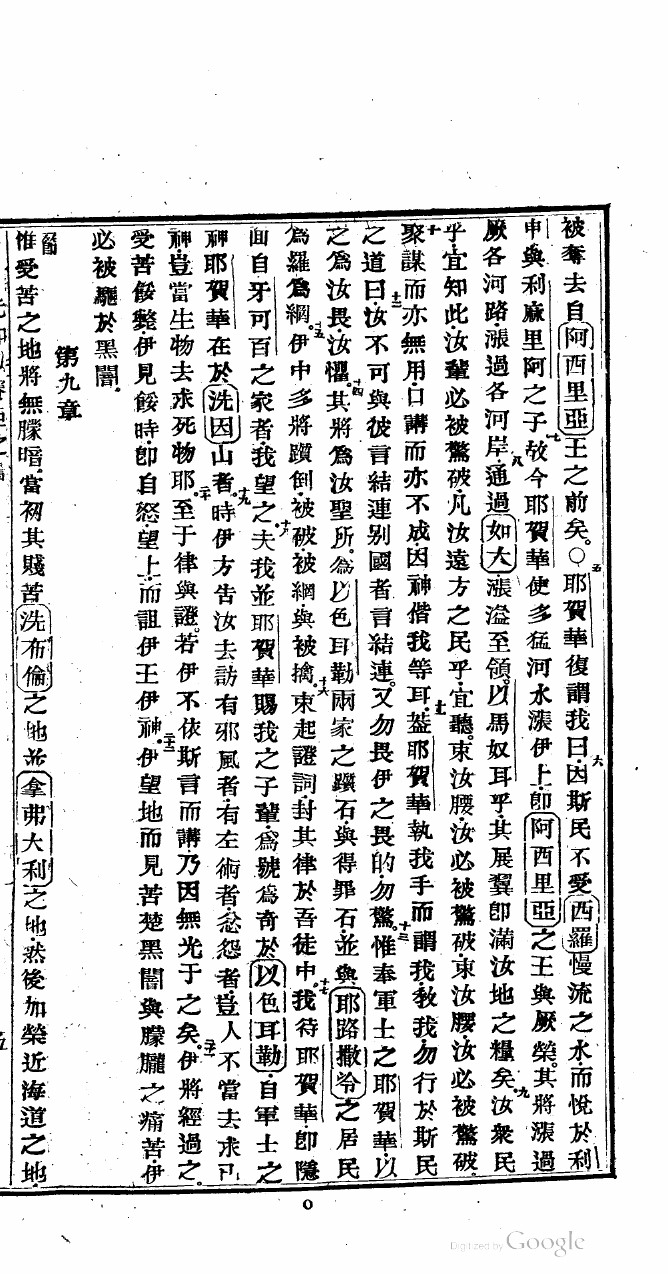 被奪去自阿西里亞王之前矣。○五耶賀華復謂我曰、六因斯民不受西羅慢流之水而悅於利
申與利麻里阿之子、七故今耶賀華使多猛河水漲伊上、卽阿西里亞之王與厥榮。其將漲過
厥各河路、漲過各河岸、八通過如大漲溢至領。以馬奴耳乎、其展翼卽滿汝地之糧矣。九汝衆民
乎宜知此、汝輩必被驚破、凡汝遠方之民乎、宜聽。束汝腰、汝必被驚破、束汝腰、汝必被驚破。
十聚謀而亦無用、口講而亦不成、因神偕我等耳。十一蓋耶賀華執我手而謂我教我勿行於斯民
之道曰、十二汝不可與彼言結連、别國者言結連。又勿畏伊之畏的、勿驚。十三惟奉軍士之耶賀華、以
之爲汝畏、汝懼。十四其將爲汝聖所。爲以色耳勒兩家之躓石、與得罪石、並與耶路撒冷之居民
爲羅爲網。十五伊中多將躓倒、被破、被網與被擒。十六束起證詞、封其律於吾徒中。十七我待耶賀華、卽隱
面自牙可百之家者、我望之。十八夫我並耶賀華賜我之子輩、爲號爲奇於以色耳勒、自軍士之
神耶賀華在於洗因山者。十九時伊方告汝去訪有邪風者、有左術者、忿怨者、豈人不當去求己
神、豈當生物去求死物耶。二十至于律與證。若伊不依斯言而講、乃因無光于之矣。二十一伊將經過之。
受苦餒斃、伊見餒時、卽自怒、望上、而詛伊王伊神。二十二伊望地而見苦楚黑闇與朦朧之痛苦、伊
必被驅於黑闇。
第九章
惟受苦之地將無朦暗。當初其賤苦洗布倫之地並拿弗大利之地、然後加榮近海道之地、
五
Digitized by Google